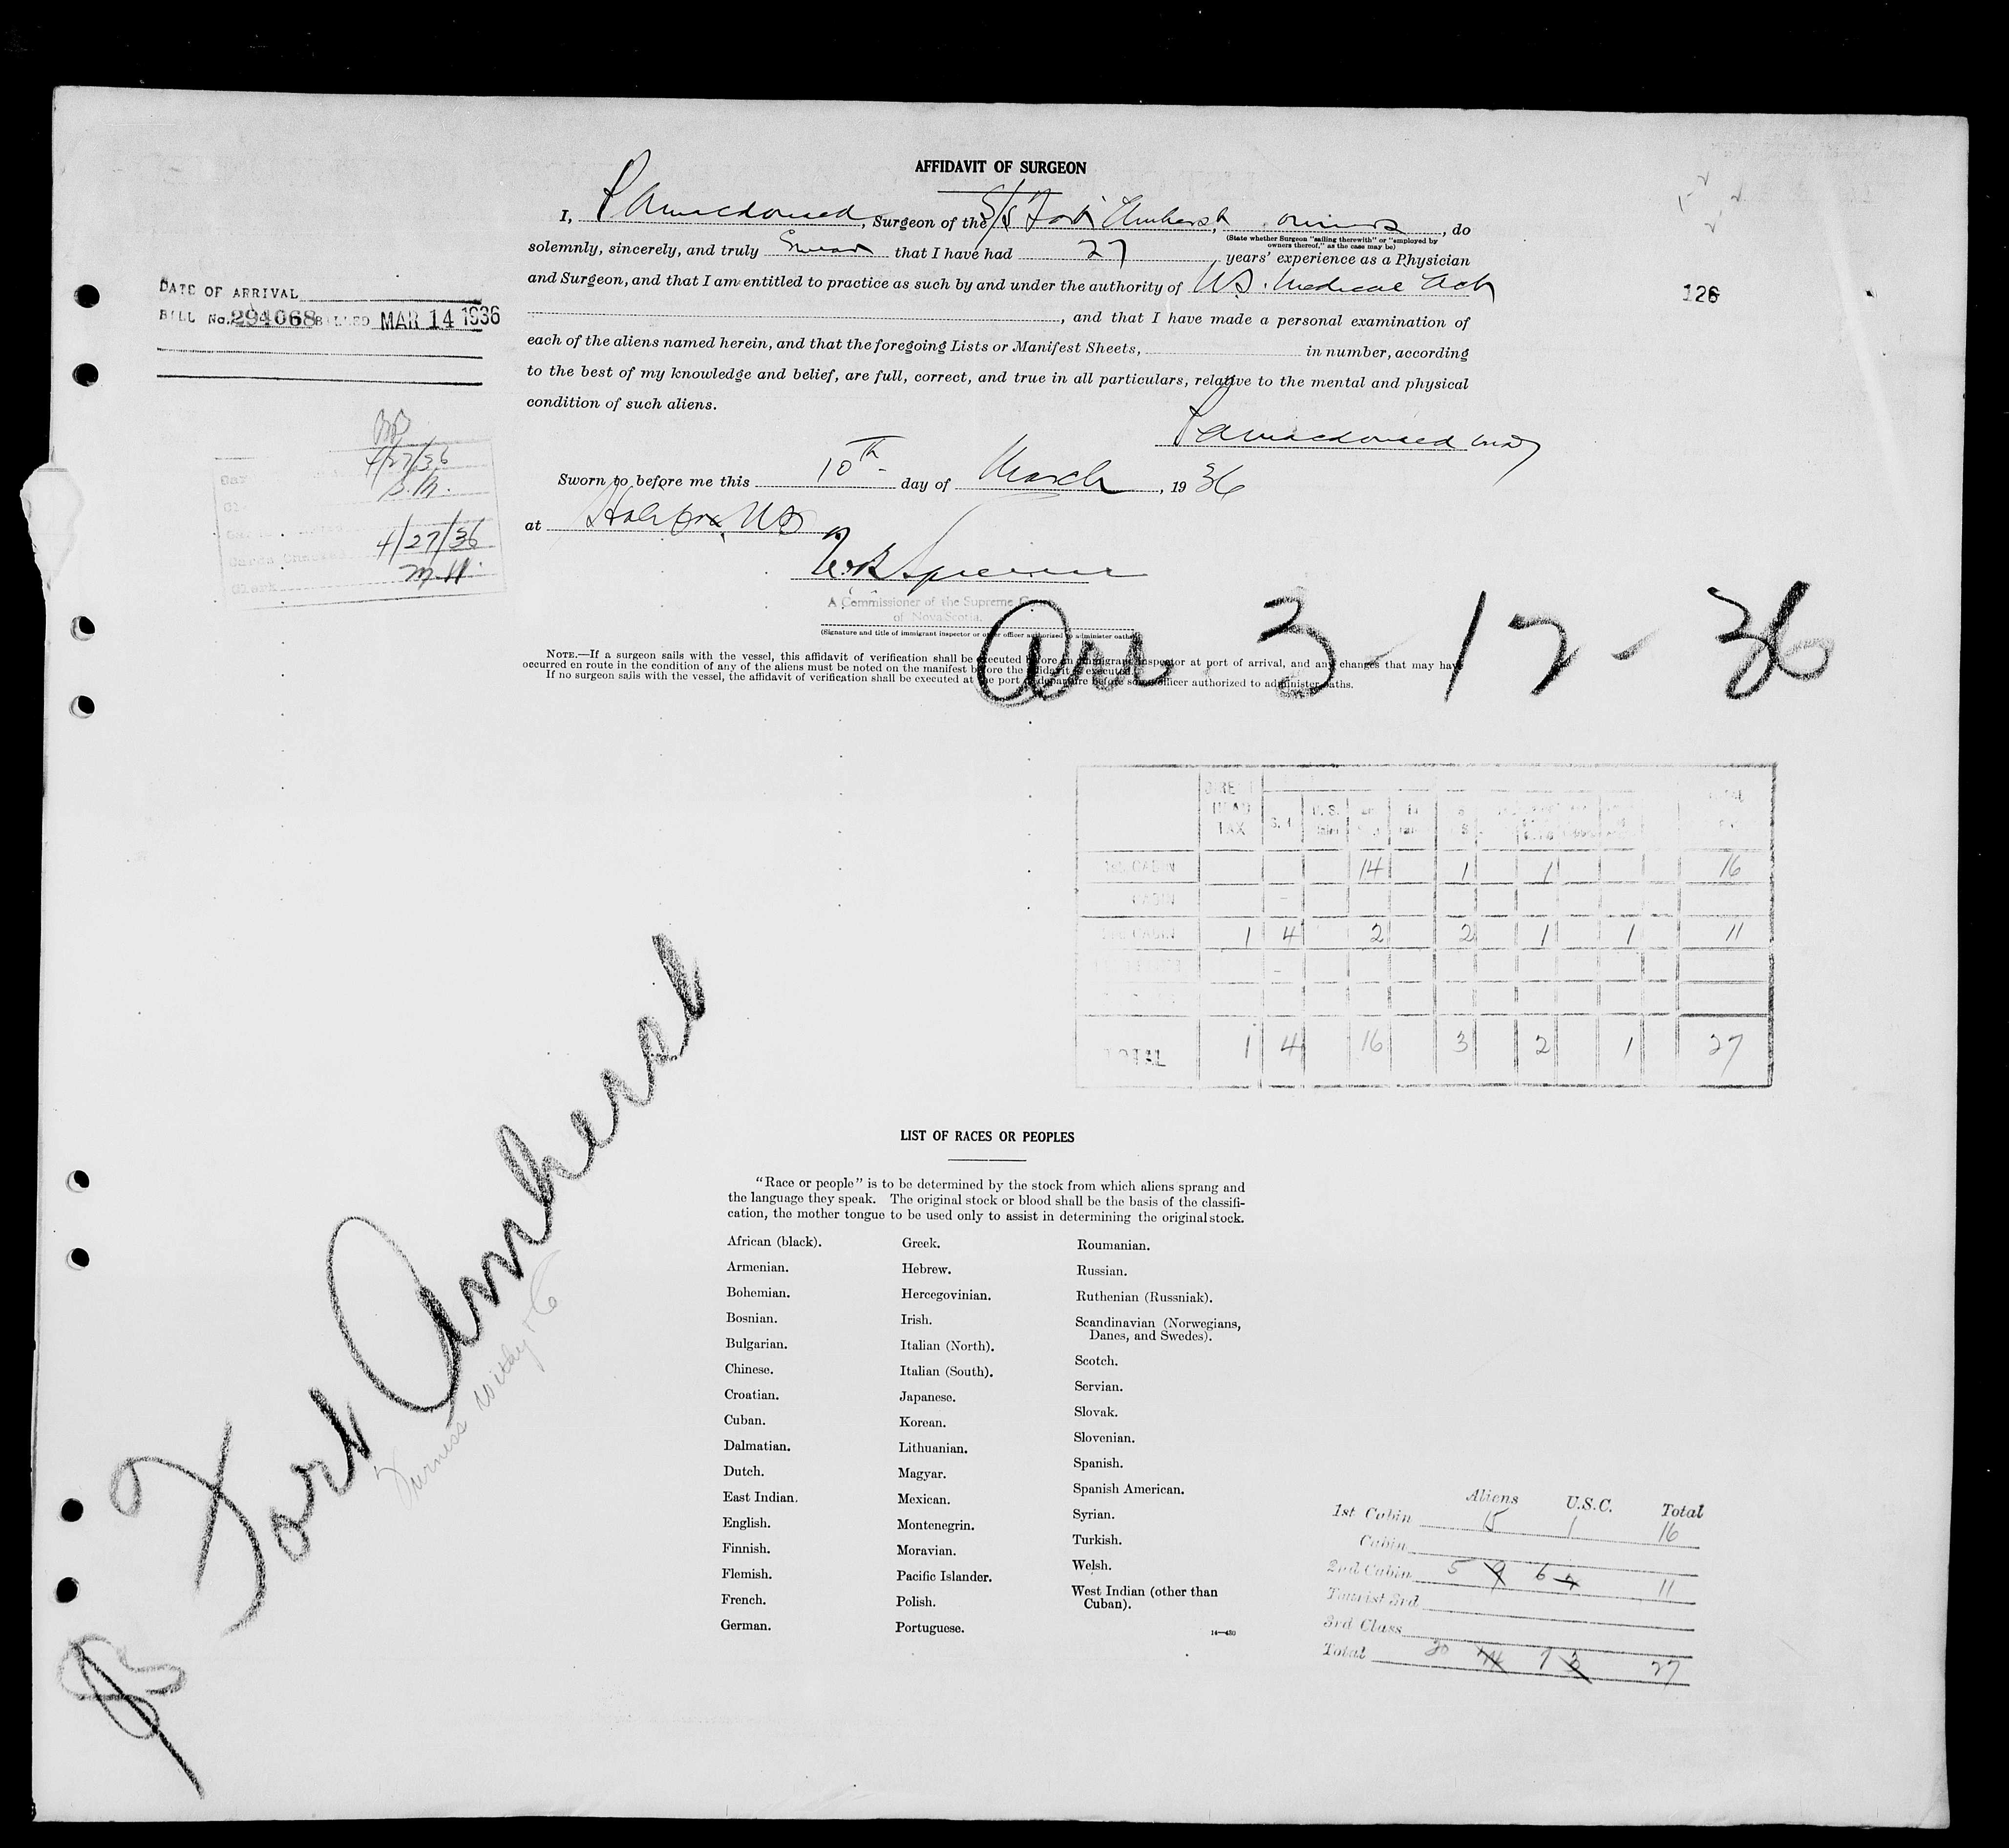 AFFIDAVIT OF SURGEON
I, P A Macdonald, Surgeon of the S/S Fort Amherst, owners, do
(State whether Surgeon "sailing therewith" or "employed by owners thereof," as the case may be)
solemnly, sincerely, and truly swear that I have had 27 years' experience as a Physician
and Surgeon, and that I am entitled to practice as such by and under the authority of N.S. Medical Act
, and that I have made a personal examination of
each of the aliens named herein, and that the foregoing Lists or Manifest Sheets, in number, according
to the best of my knowledge and belief, are full, correct, and true in all particulars, relative to the mental and physical
condition of such aliens.
P A Macdonald MD
Sworn to before me this 10th day of March, 1936
at Halifax, NS
A Commissioner of the Supreme
of Nova Scotia.
(Signature and title of immigrant inspector or other officer authorized to administer oaths)
NOTE.—If a surgeon sails with the vessel, this affidavit of verification shall be executed before an immigrant inspector at port of arrival, and any changes that may have
occurred en route in the condition of any of the aliens must be noted on the manifest before the affidavit is executed.
If no surgeon sails with the vessel, the affidavit of verification shall be executed at the port of departure before some officer authorized to administer oaths.
126
DATE OF ARRIVAL
BILL No. 294068 BILLED MAR 14 1936
4/27/36
S.M.
4/27/36
Clerk M.H.
Arr 3-12-36
DIRECT HEAD TAX S.I. U.S. TOTAL
1st CABIN 14 1 1 16
CABIN
2nd CABIN 1 4 2 2 1 1 11
TOTAL 1 4 16 3 2 1 27
Fort Amherst
Furness Withy & Co
LIST OF RACES OR PEOPLES
"Race or people" is to be determined by the stock from which aliens sprang and
the language they speak. The original stock or blood shall be the basis of the classifi-
cation, the mother tongue to be used only to assist in determining the original stock.
African (black).
Armenian.
Bohemian.
Bosnian.
Bulgarian.
Chinese.
Croatian.
Cuban.
Dalmatian.
Dutch.
East Indian.
English.
Finnish.
Flemish.
French.
German.
Greek.
Hebrew.
Hercegovinian.
Irish.
Italian (North).
Italian (South).
Japanese.
Korean.
Lithuanian.
Magyar.
Mexican.
Montenegrin.
Moravian.
Pacific Islander.
Polish.
Portuguese.
Roumanian.
Russian.
Ruthenian (Russniak).
Scandinavian (Norwegians,
Danes, and Swedes).
Scotch.
Servian.
Slovak.
Slovenian.
Spanish.
Spanish American.
Syrian.
Turkish.
Welsh.
West Indian (other than
Cuban).
14—430
Aliens U.S.C. Total
1st Cabin 15 1 16
Cabin
2nd Cabin 5 9 6 11
Tourist 3rd
3rd Class
Total 20 7 27